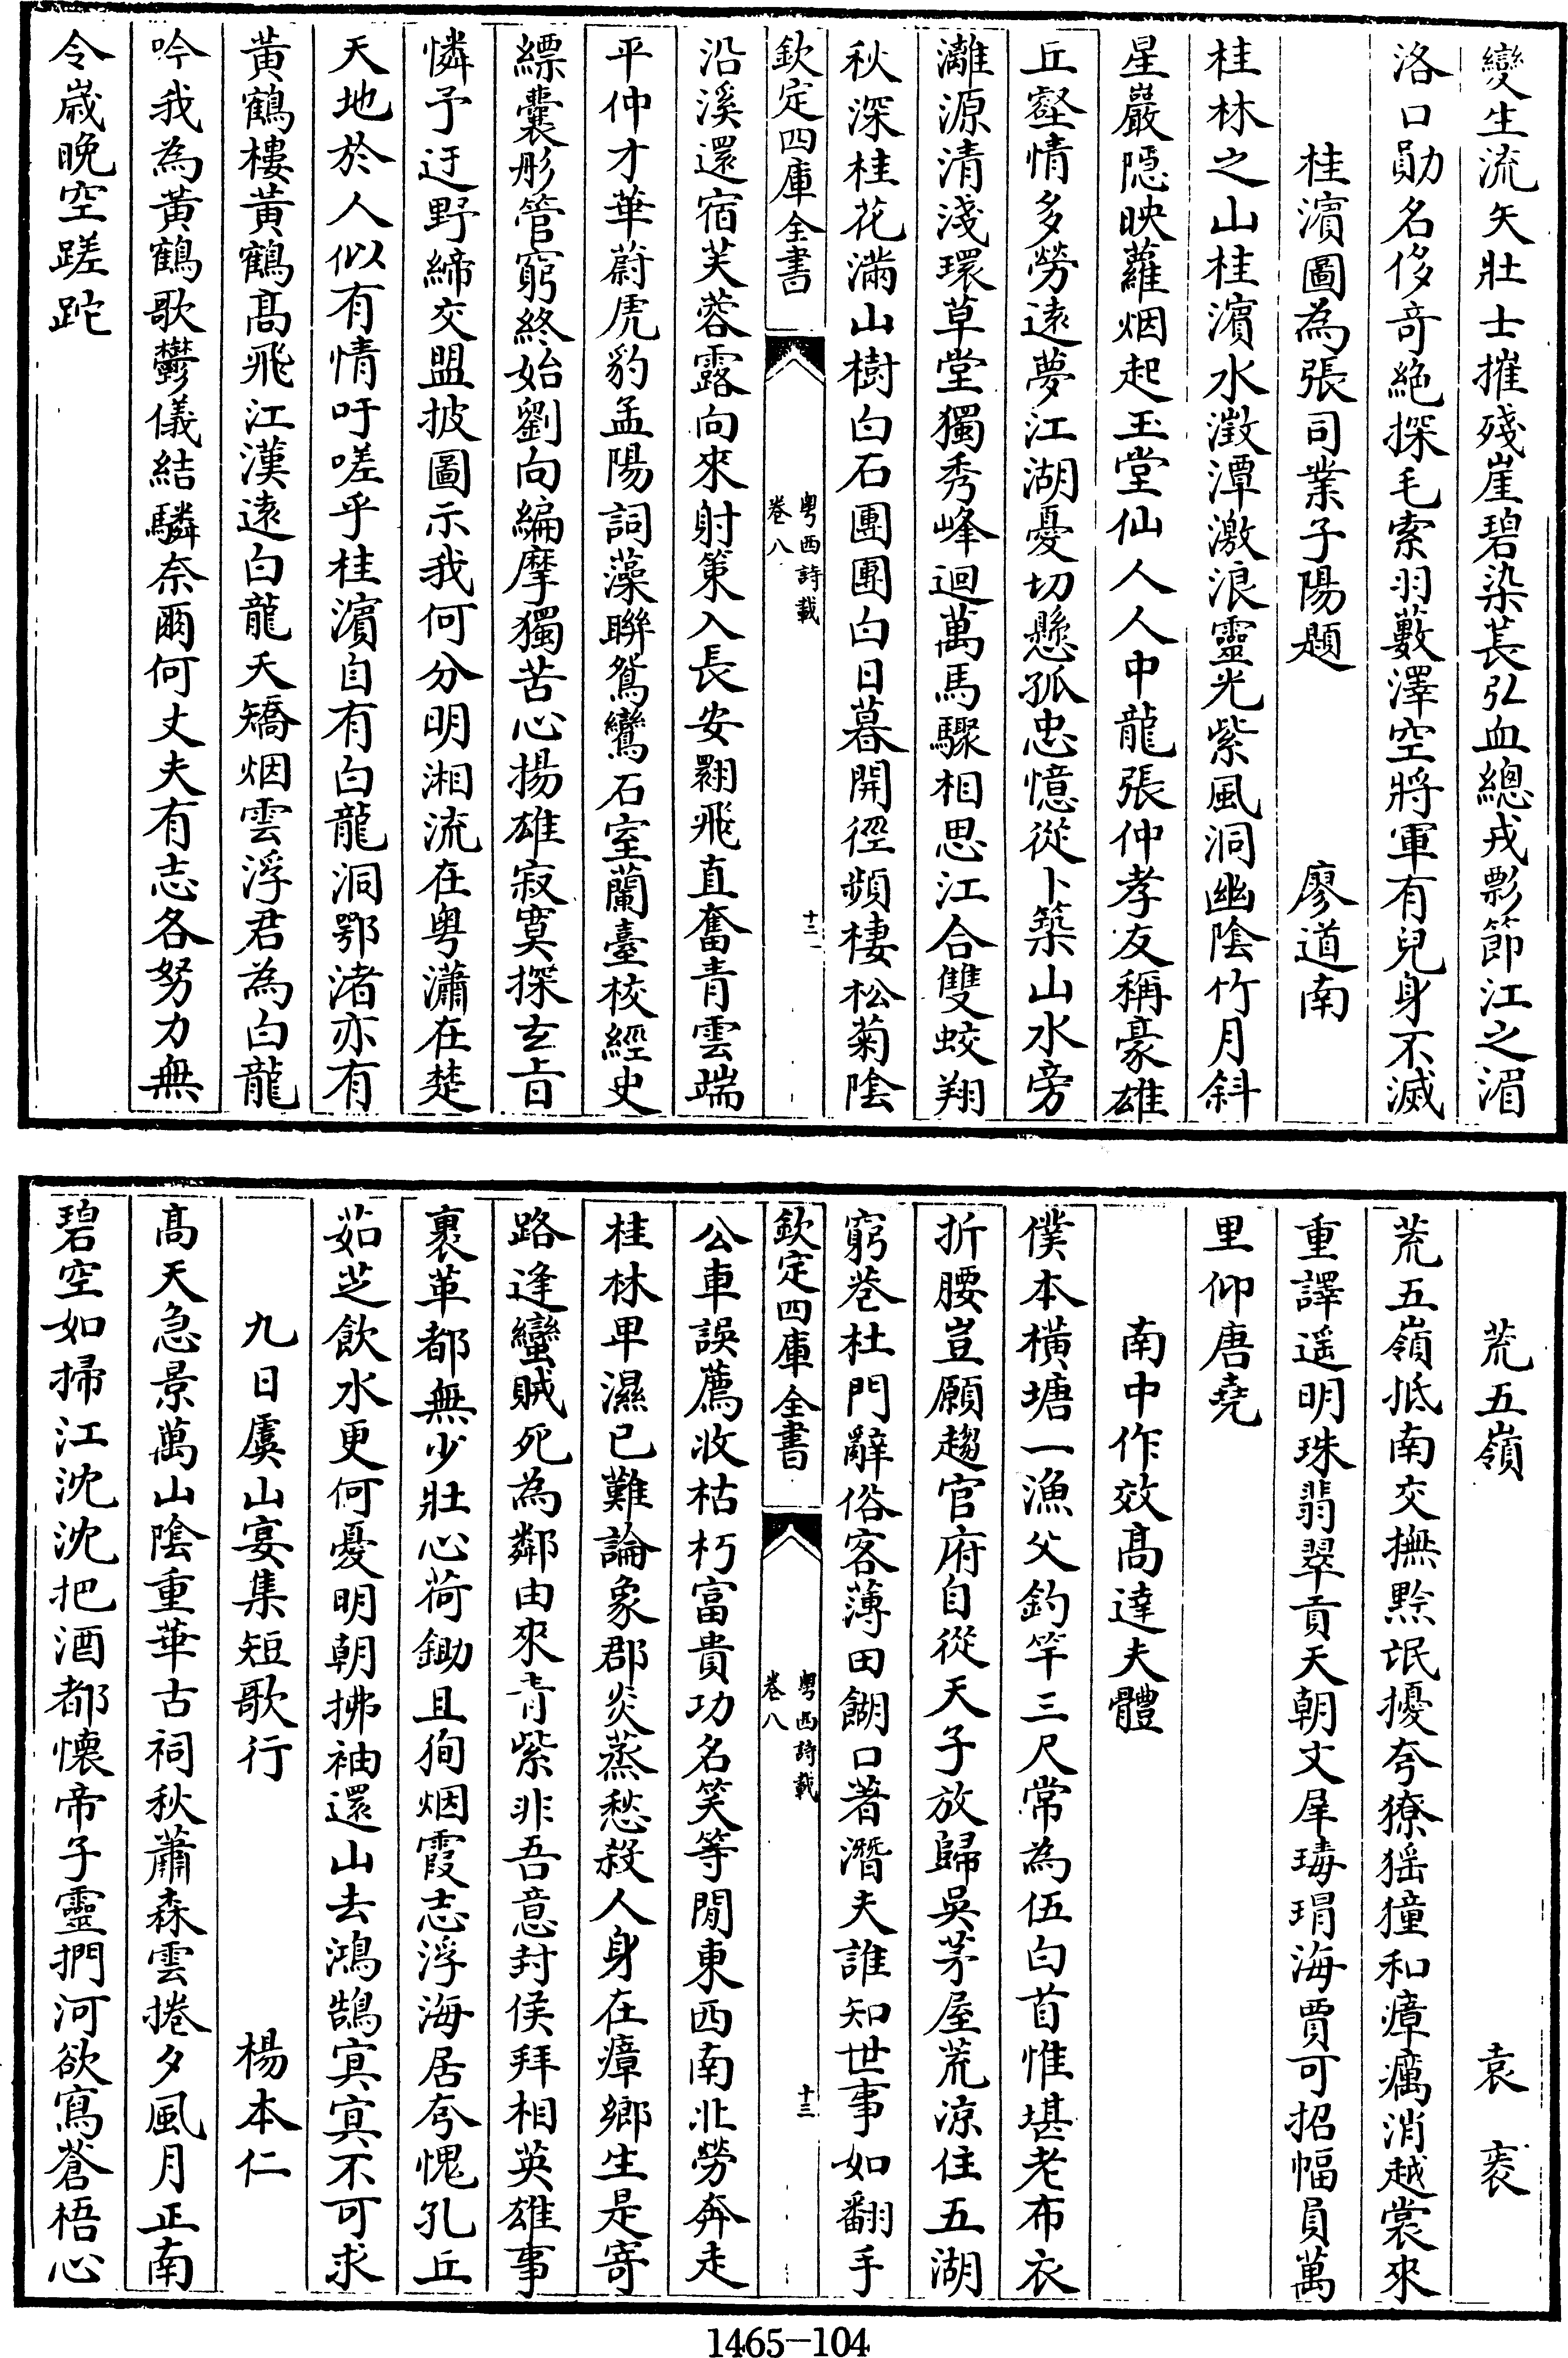 變生流矢壯士摧殘崖碧染萇弘血總戎彯節江之湄
洛口勛名侈竒絶探毛索羽藪澤空將軍有兒身不滅
桂濱圖為張司業子陽題　廖道南
桂林之山桂濱水澂潭激浪靈光紫風洞幽陰竹月斜
星巖隠映蘿烟起玉堂仙人人中龍張仲孝友稱豪雄
丘壑情多勞遠夢江湖憂切懸孤忠憶從卜築山水旁
灕源清淺環草堂獨秀峰迴萬馬驟相思江合雙蛟翔
秋深桂花滿山樹白石團團白日暮開徑頻棲松菊陰
欽定四庫全書　粤西詩載　卷八　十二
沿溪還宿芙蓉露向來射策入長安翾飛直奮青雲端
平仲才華蔚虎豹孟陽詞藻聯鴛鸞石室蘭臺校經史
縹囊彤管窮終始劉向編摩獨苦心揚雄寂寞探玄㫖
憐予迂野締交盟披圖示我何分明湘流在粤瀟在楚
天地於人似有情吁嗟乎桂濱自有白龍洞鄂渚亦有
黃鶴樓黃鶴髙飛江漢遠白龍夭矯烟雲浮君為白龍
吟我為黃鶴歌鬱儀結驎奈爾何丈夫有志各努力無
令嵗晩空蹉跎
荒五嶺　袁袠
荒五嶺抵南交撫黙氓擾夸獠猺獞和瘴癘消越裳來
重譯遥明珠翡翠貢天朝文犀瑇瑁海賈可招幅員萬
里仰唐堯
南中作效髙達夫體
僕本横塘一漁父釣竿三尺常為伍白首惟堪老布衣
折腰豈願趨官府自從天子放歸吳茅屋荒凉住五湖
窮巷杜門辭俗客薄田餬口著潛夫誰知世事如翻手
欽定四庫全書　粤西詩載　卷八　十三
公車誤薦收枯朽富貴功名笑等閒東西南北勞奔走
桂林卑濕已難論象郡炎蒸愁殺人身在瘴鄉生是寄
路逢蠻賊死為鄰由來青紫非吾意封侯拜相英雄事
裹革都無少壯心荷鋤且狥烟霞志浮海居夸愧孔丘
茹芝飲水更何憂明朝拂袖還山去鴻鵠㝠㝠不可求
九日虞山宴集短歌行　楊本仁
髙天急景萬山隂重華古祠秋蕭森雲捲夕風月正南
碧空如掃江沈沈把酒都懐帝子靈捫河欲寫蒼梧心
1465-104